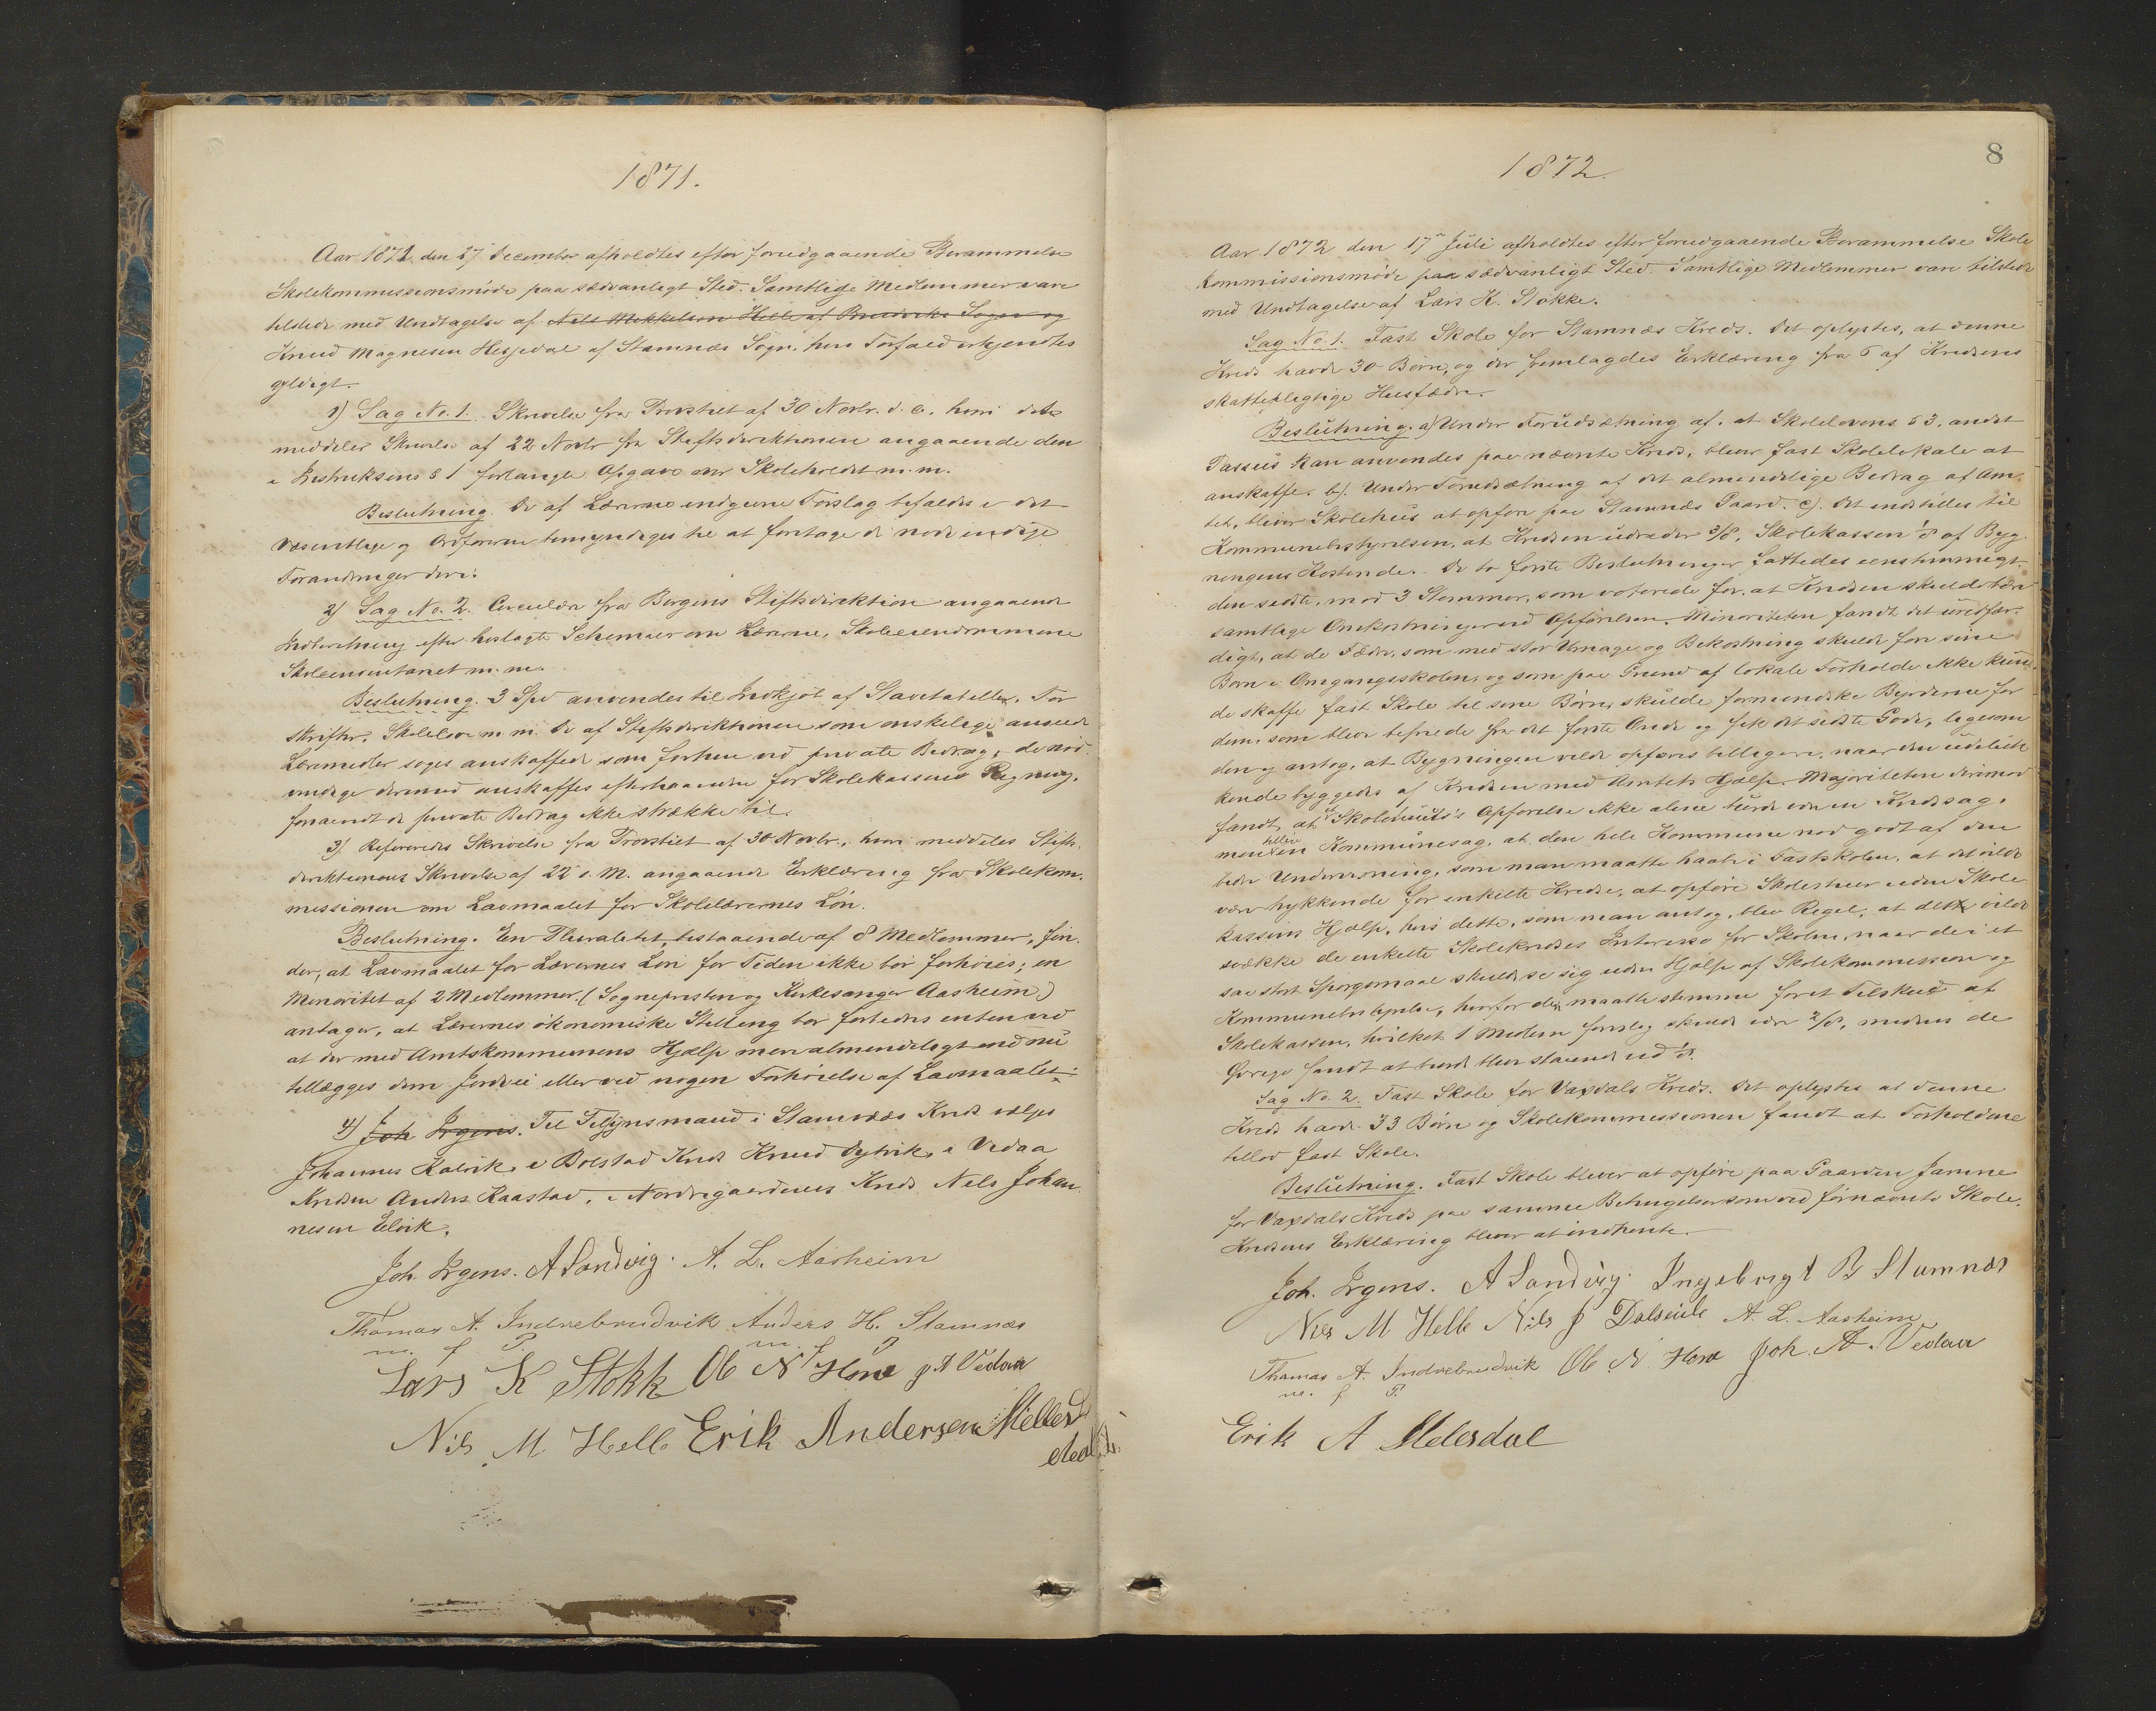 1871.
Aar 1871 den 27 December afholdtes efter foregaaende Berammelse
Skolekommissionsmöde paa sædvanligt Sted. Samtlige Medlemmer vare
tilstede med Undtagelse af Nils Mikkelsen Helle af Bruviks Sogn og
Knud Magnesen Hesjedal af Stamnæs Sogn, hvis Forfald erkjendtes
gyldigt.
1) Sag No. 1. Skrivelse fra Provstiet af 30 Novbr. d. A. hvori dette
meddeler Skrivelse af 22 Novbr fra Stiftsdirektionen angaaende den
i Instruksens § 1 forlangte Opgave over Skoleholdet m. m.
Beslutning. De af Lærerne indgivne Forslag bifaldes i det
væsentlige og Ordføreren bemyndiges til at foretage de nødvendige
Forandringer deri.
2) Sag No. 2. Circulære fra Bergens Stiftsdirektion angaaende
Indberetning efter hoslagte Schemaer om Lærerne, Skoleeiendommene
Skoleinventariet m. m.
Beslutning. 3 Spd anvendes til Indkjöb af Stavetabeller, For
skrifter, Skolelove m. m. De af Stiftsdirektionen som ønskelige anseede
Læremidler søges anskaffede som forhen ved private Bidrag, de nöd
vendige derimod anskaffes efterhaanden for Skolekassens Regning,
forsaavidt de private Bidrag ikke strække til.
3) Refereredes Skrivelse fra Provstiet af 30 Novbr., hvori meddeles Stifts-
direktionens Skrivelse af 22 s. M. angaaende Erklæring fra Skolekom-
missionen om Lavmaalet for Skolelærernes Lön.
Beslutning. En Pluralitet, bestaaende af 8 Medlemmer, fin-
der, at Lavmaalet for Lærernes Lön for Tiden ikke bör forhöies; en
Minoritet af 2 Medlemmer (Sognepresten og Kirkesanger Aasheim)
antager, at Lærernes ökonomiske Stilling bör forbedres enten ved
at der med Amtskommunens Hjælp mere almindeligt end nu
tillægges dem Jordvei eller ved nogen Forhöielse af Lavmaalet.
4) Joh. Irgens. Til Tilsynsmand i Stamnæs Kreds valges
Johannes Kalvik, i Bolstad Kreds Knud Dyvik, i Vedaa
Kredsen Anders Kaastad, i Nordregaardenes Kreds Nels Johan
nesen Eelvik.
Joh. Irgens. A Sandvig. A. L. Aasheim
Thomas A. Indrebrudvik Anders H. Stamnæs
m. f P. m. f P
Lars K Stokk Ole N Hove J A Vedaa
Nils M Helle Erik Andersen Melles
dal
8
1872.
Aar 1872 den 17de Juli afholdtes efter forudgaaende Berammelse Skole
kommissionsmöde paa sædvanligt Sted. Samtlige Medlemmer vare tilstede
med Undtagelse af Lars K. Stokke.
Sag No. 1. Fast Skole for Stamnæs Kreds. Det oplystes, at denne
Kreds havde 30 Börn, og der fremlagdes Erklæring fra 6 af Kredsens
skattepligtige Husfædre.
Beslutning. a) Under Forudsætning af, at Skolelovens § 3, andet
Passus kan anvendes paa nævnte Kreds, bliver fast Skolelokale at
anskaffe. b). Under Forudsætning af det almindelige Bidrag af Am-
tet, bliver Skolehus at opføre paa Stamnæs Gaard. c). Det indstilles til
Kommunebestyrelsen, at Kredsen udreder 3/8, Skolekassen 1/8 af Byg-
ningens Kostende. De to første Beslutninger fattedes eenstemmigt
den sidste, mod 3 Stemmer, som voterede for, at Kredsen skulde bære
samtlige Omkostninger ved Opførelsen. Minoriteten fandt det uretfær-
digt, at de Fædre, som med stor Umage og Bekostning skulde føre sine
Børn i Omgangsskolen, og som paa Grund af lokale Forholde ikke kun-
de skaffe fast Skole til sine Børn, skulde formindske Byrderne for
dem, som blev befriede fra det første Onde og fik det sidste Gode, ligesom
den og antog, at Bygningen vilde opføres billigere, naar den udeluk-
kende byggedes af Kredsen med Amtets Hjælp. Majoriteten derimod
fandt, at et Skolehuses Opførelse ikke alene burde være en Kredssag,
men heller en Kommunesag, at den hele Kommune nød godt af den
bedre Underviisning, som man maatte haabe i Fastskolen, at det vilde
være trykkende for enkelte Kredse, at opføre Skolehuse uden Skole
kassens Hjælp, hvis dette, som man antog, blev Regel, at dette vilde
svække de enkelte Skolekredses Interesse for Skolen, naar de i et
saa stort Spørgsmaal skulde se sig uden Hjælp af Skolekommission og
Kommunebestyrelse, hvorfor de maatte stemme for et Tilskud af
Skolekassen, hvilket 1 Medlem foreslog skulde være 2/8, medens de
Øvrige fandt at burde blive staaende ved 1/8.
Sag No. 2. Fast Skole for Vaxdals Kreds. Det oplystes at denne
Kreds havde 33 Børn og Skolekommissionen fandt at Forholdene
tillod fast Skole.
Beslutning. Fast Skole bliver at opføre paa Gaarden Jamne
for Vaxdals Kreds paa samme Betingelser som ved førnævnte Skole.
Kredsens Erklæring bliver at indhente.
Joh. Irgens. A Sandvig. Ingebrigt B Stamnæs
Nils M Helle Nils J Dalseide A. L. Aasheim
Thomas A. Indrebrudvik Ole N Hove Joh. A. Vedaa
m. f P.
Erik A Melesdal